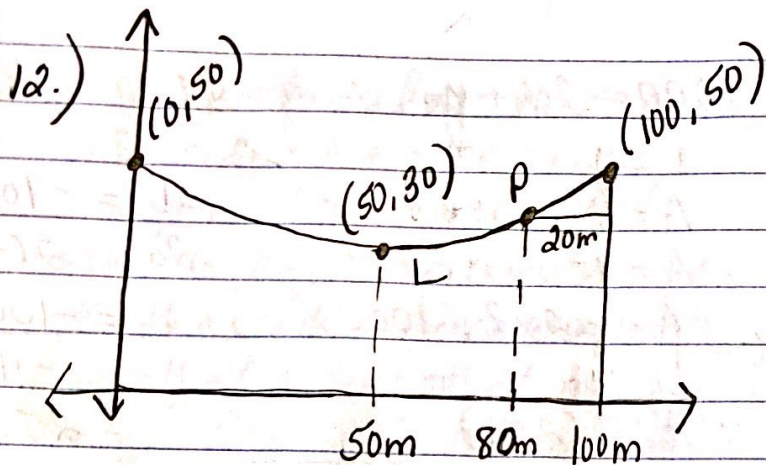 12.)
(0,50)
(100,50)
(50,30)
P
20m
L
50m 80m 100m